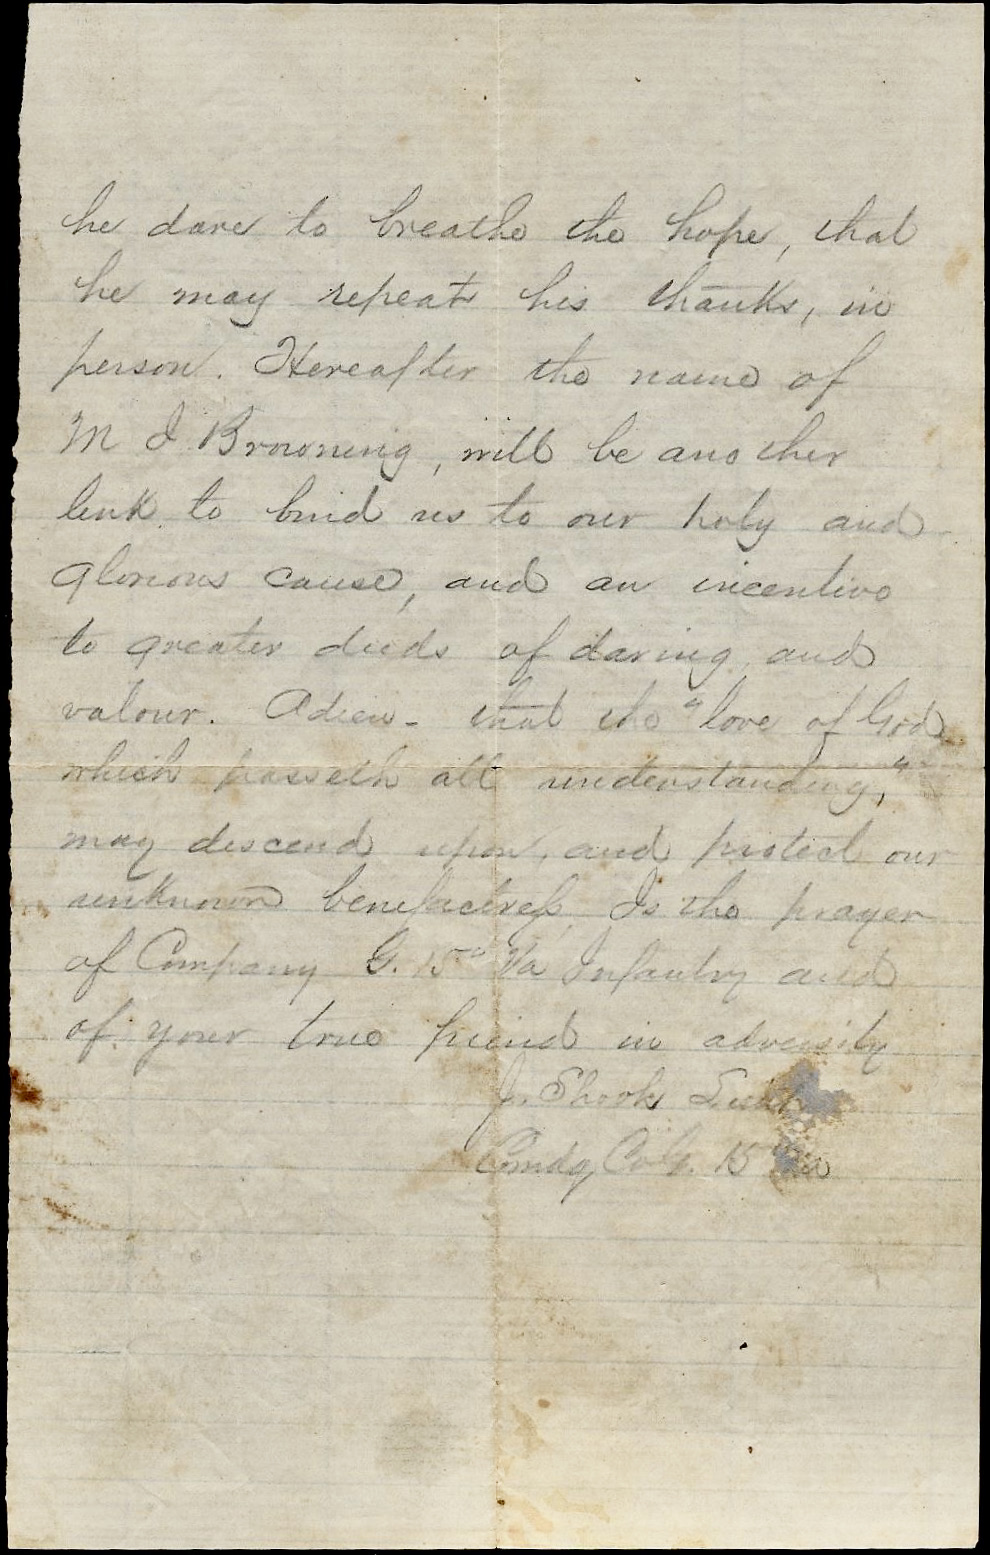 he dare to breathe the hope, that
he may repeat his thanks, in
person. Hereafter the name of
M J Browning, will be another
link to bind us to our holy and
glorious cause, and an incentive
to greater deeds of daring and
valour. Adieu - that the "love of God
which passeth all understanding,"
may descend upon, and protect our
unknown benefactress, Is the prayer
of Company G. 15th Va Infantry and
of your true friend in adversity
J. Shook Lieut
Comdg Co G. 15th Va